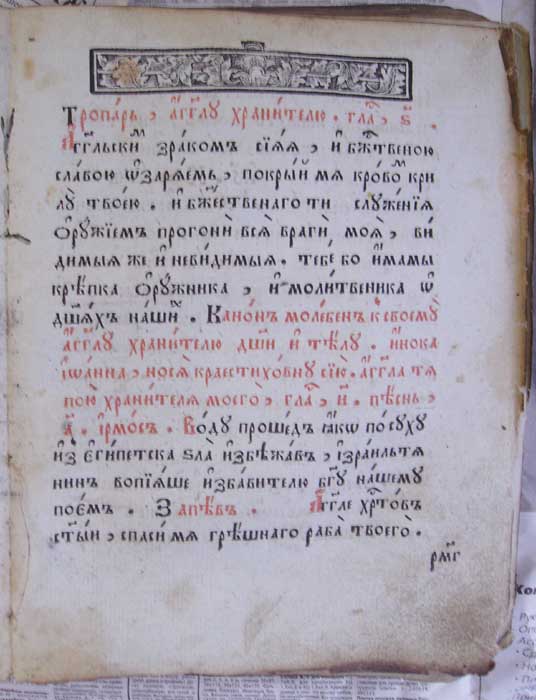 Тропа́рь , а҆́гг҃лу храни́телю . гла́ , ѕ҃ .
А҆́гг҃льски зра́комъ сїѧ́ѧ , и҆ бж҃твеною
сла́вою ѡ҆зарѧ́емь , покры́й мѧ кро́вом кри
лꙋ̀ твое́ю . и҆ бж҃е́ственаго ти служе́нїѧ
о҆рꙋ́жїемъ прогони̂ всѧ̀ враги̂ моѧ̀ , ви́
димыѧ же и҆ неви́димыѧ . тебе́ бо и҆́мамы
крѣ́пка о҆рꙋ́жника , и҆ моли́твеника ѡ҆
дш҃а́хъ на́ши . Кано́нъ моле́бенъ к̾ своемꙋ̀
а҆́гг҃лу храни́телю дш҃и и҆ тѣ́лꙋ . и҆́нока
і҆ѡа́нна , носѧ̀ краестихо́внꙋ сїю̀ . а҆́гг҃ла тѧ
пою̀ храни́телѧ моего̀ , гла́ , и҃ . пѣ́снь ,
а҃ . і҆рмо́съ . Во́дꙋ проше́дъ ꙗ҆́кѡ по сꙋ́хꙋ
и҆з̾ є҆гі́петска ѕла̀ и҆збѣжа́въ , і҆зраи́льтѧ
нинъ вопїѧ́ше и҆зба́вителю бг҃ꙋ на́шемꙋ
пое́мъ . Запѣ́въ . А҆́гг҃ле хрⷭ҇то́въ
ст҃ы́и , спаси́ мѧ грѣ́шнаго раба̀ твоего̀ .
рм҃г